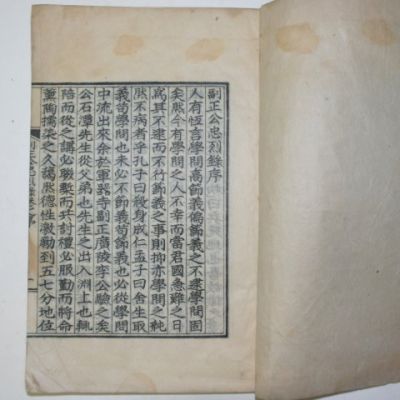 副正公忠烈錄序
人有恆言學問高節義偏節義之不逮學問固
矣然今有學問之人不幸而當君國急難之日
爲其非不逮而不行節義之事則抑亦學問之純
然不病者乎孔子曰殺身成仁孟子曰舍生取
義苟學問也未必不節義苟節義也必從學問
中流出來余於軍器寺副正廣陵李公驗之矣
公石潭先生從父弟也先生之出入淵上也輒
陪而從之講必聯槧而共討禮必服勤而將命
薰陶擩染之久藹然德性激勵到五七分地位